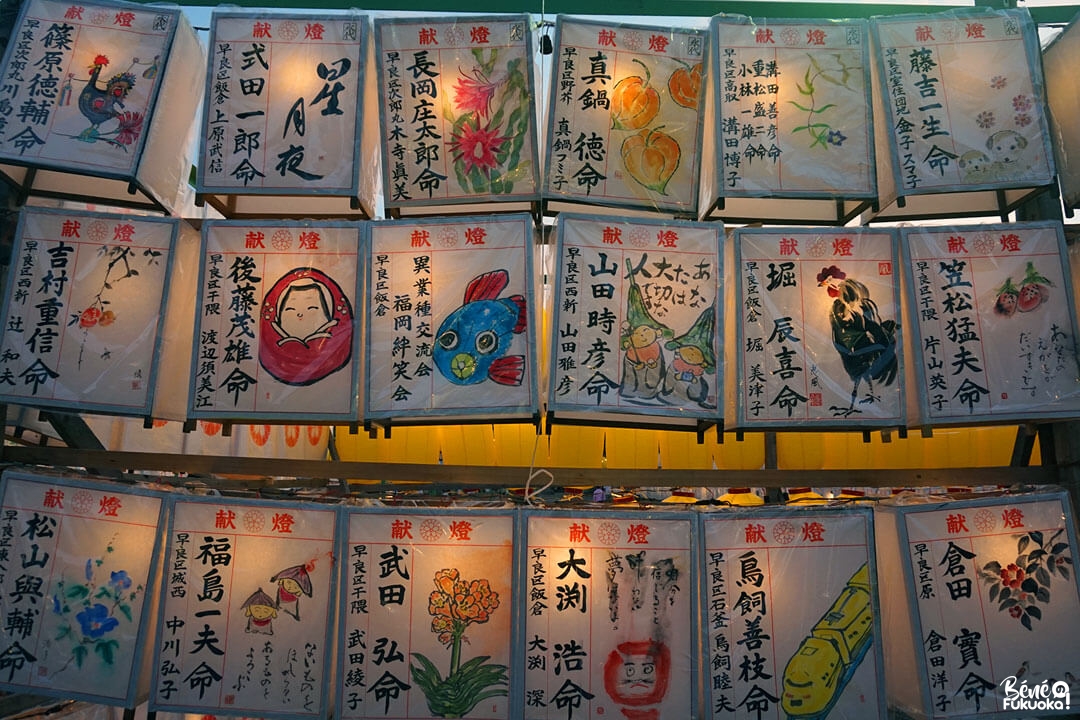 献燈
篠原德輔命
早良区次郎丸
献燈
早良区飯倉
式田一郎命
上原武信
星月夜
献燈
早良区次郎丸
長岡庄太郎命
木寺眞美
献燈
早良区野芥
真鍋 徳命
真鍋フミ子
献燈
早良区高取
溝田善彦命
重松盛二命
小林一雄命
溝田博子
献燈
早良区室住団地
藤吉一生命
金子スマ子
献燈
早良区西新
吉村重信命
辻 和夫
献燈
早良区干隈
後藤茂雄命
渡辺須美江
献燈
早良区飯倉
異業種交流会
福岡絆笑会
献燈
早良区西新
山田時彦命
山田雅彦
あなた
大切な人
献燈
早良区飯倉
堀 辰喜命
堀 美津子
献燈
早良区干隈
笠松猛夫命
片山英子
献燈
松山與輔命
献燈
早良区城西
福島一夫命
中川弘子
献燈
早良区干隈
武田 弘命
武田綾子
献燈
早良区飯倉
大渕 浩命
大渕 深
献燈
早良区石釜
鳥飼善枝命
鳥飼睦夫
献燈
早良区原
倉田 實命
倉田洋子
Béné
FUKUOKA!